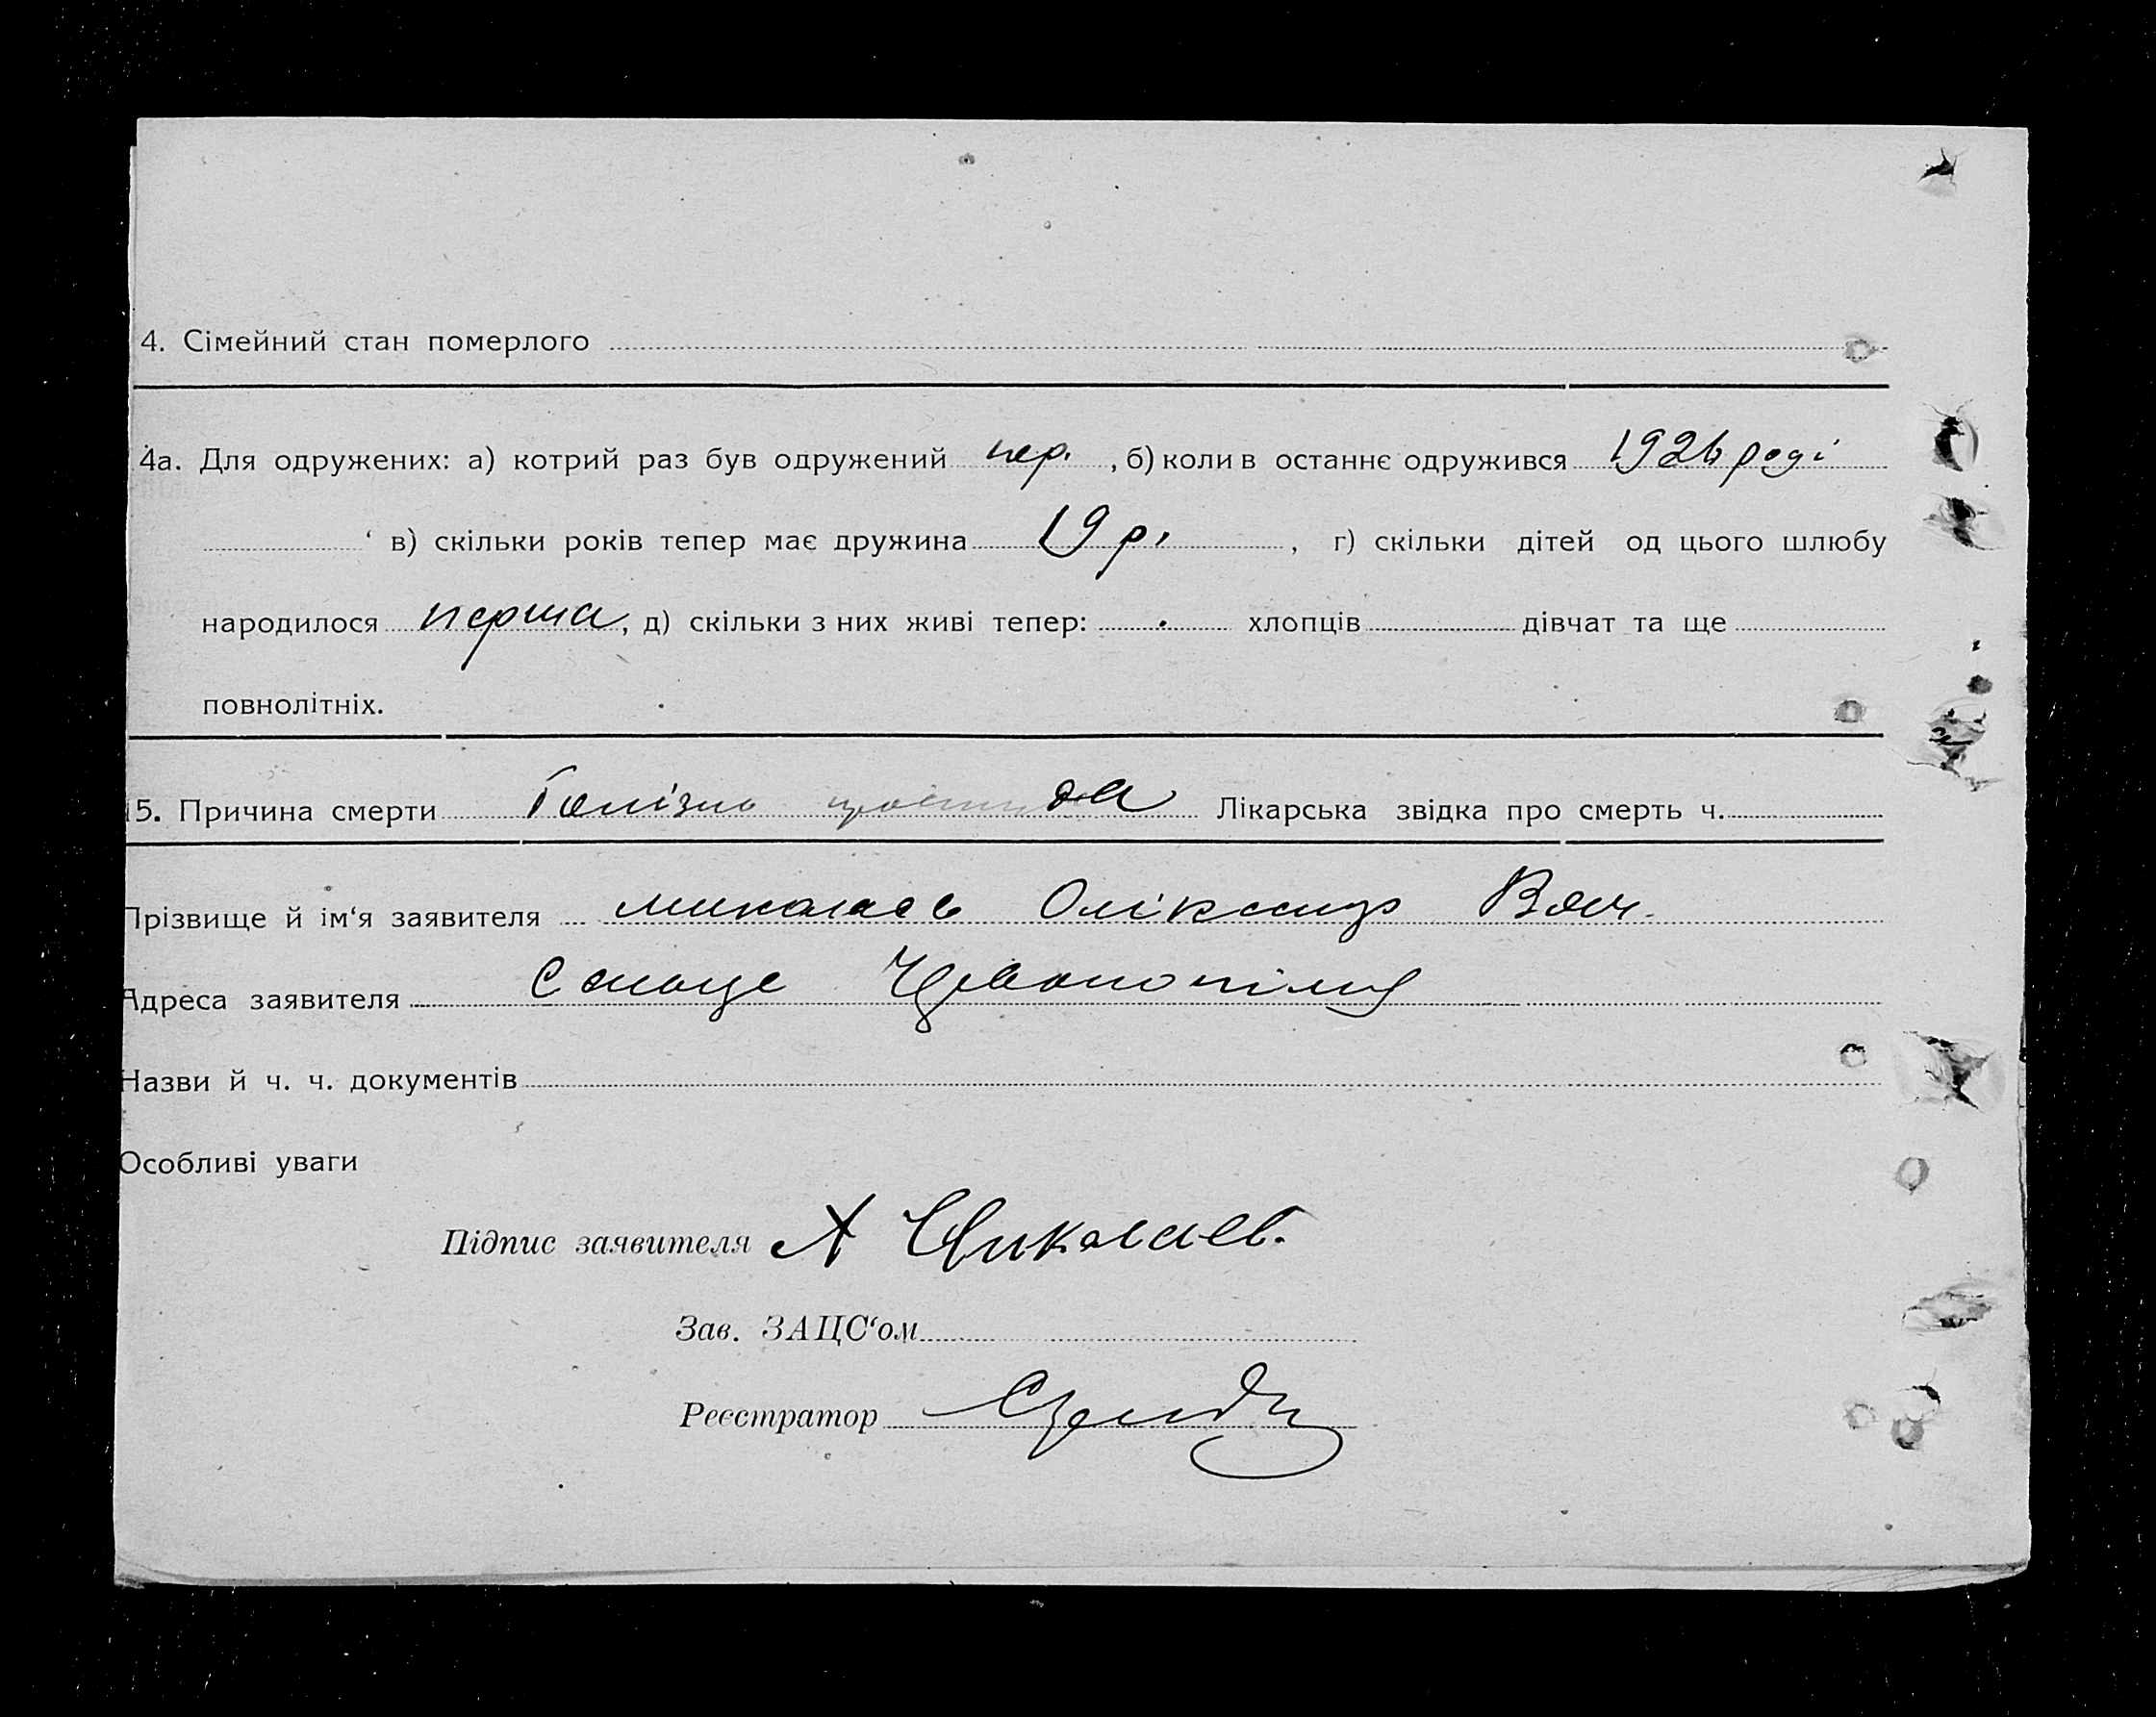 4. Сімейний стан померлого
4а. Для одружених: а) котрий раз був одружений пер. , б) коли в останнє одружився 1926 роді
‘ в) скільки років тепер має дружина 19 р. , г) скільки дітей од цього шлюбу
народилося перша, д) скільки з них живі тепер: хлопців дівчат та ще
повнолітніх.
15. Причина смерти Лікарська звідка про смерть ч.
Прізвище й ім‘я заявителя миколаєв Оліксандр Вяч.
Адреса заявителя
Назви й ч. ч. документів
Особливі уваги
Підпис заявителя А Николаев.
Зав. ЗАЦС‘ом
Реєстратор